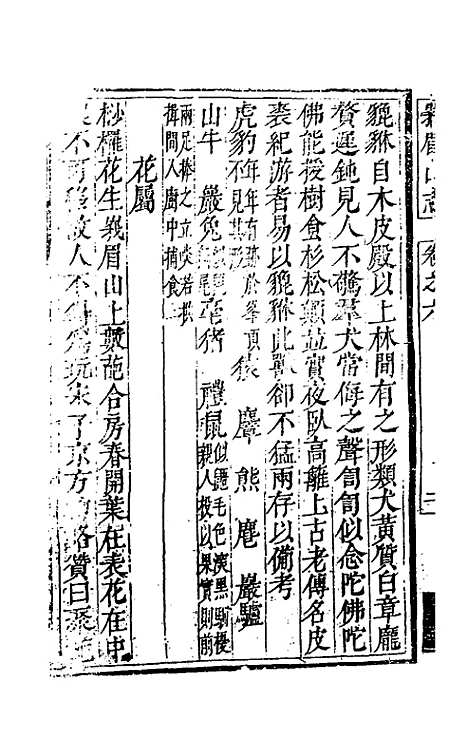 貔貅自木皮殿以上林間有之形類犬黃質白章龐
贅遲鈍見人不驚羣犬常侮之聲訇訇似念陀佛陀
佛能援樹食杉松顚並實夜臥高籬上古老傳名皮
裘紀游者易以貔貅此獸卻不猛兩存以備考
虎豹 年年有跡於峯頂 不見其形 猿 麞 熊 麂 巖驢
山牛 巖兔 豪猪 禮鼠 似鼯毛色蒼黑馴擾
親人投以果實則前
兩足捧之立啖若拱
揖間入廚中捕食
花屬
桫欏花生峩眉山上數葩合房春開葉在表花在中
不可移故人不得 玩宋子京方 略贊曰聚葩
卷之六